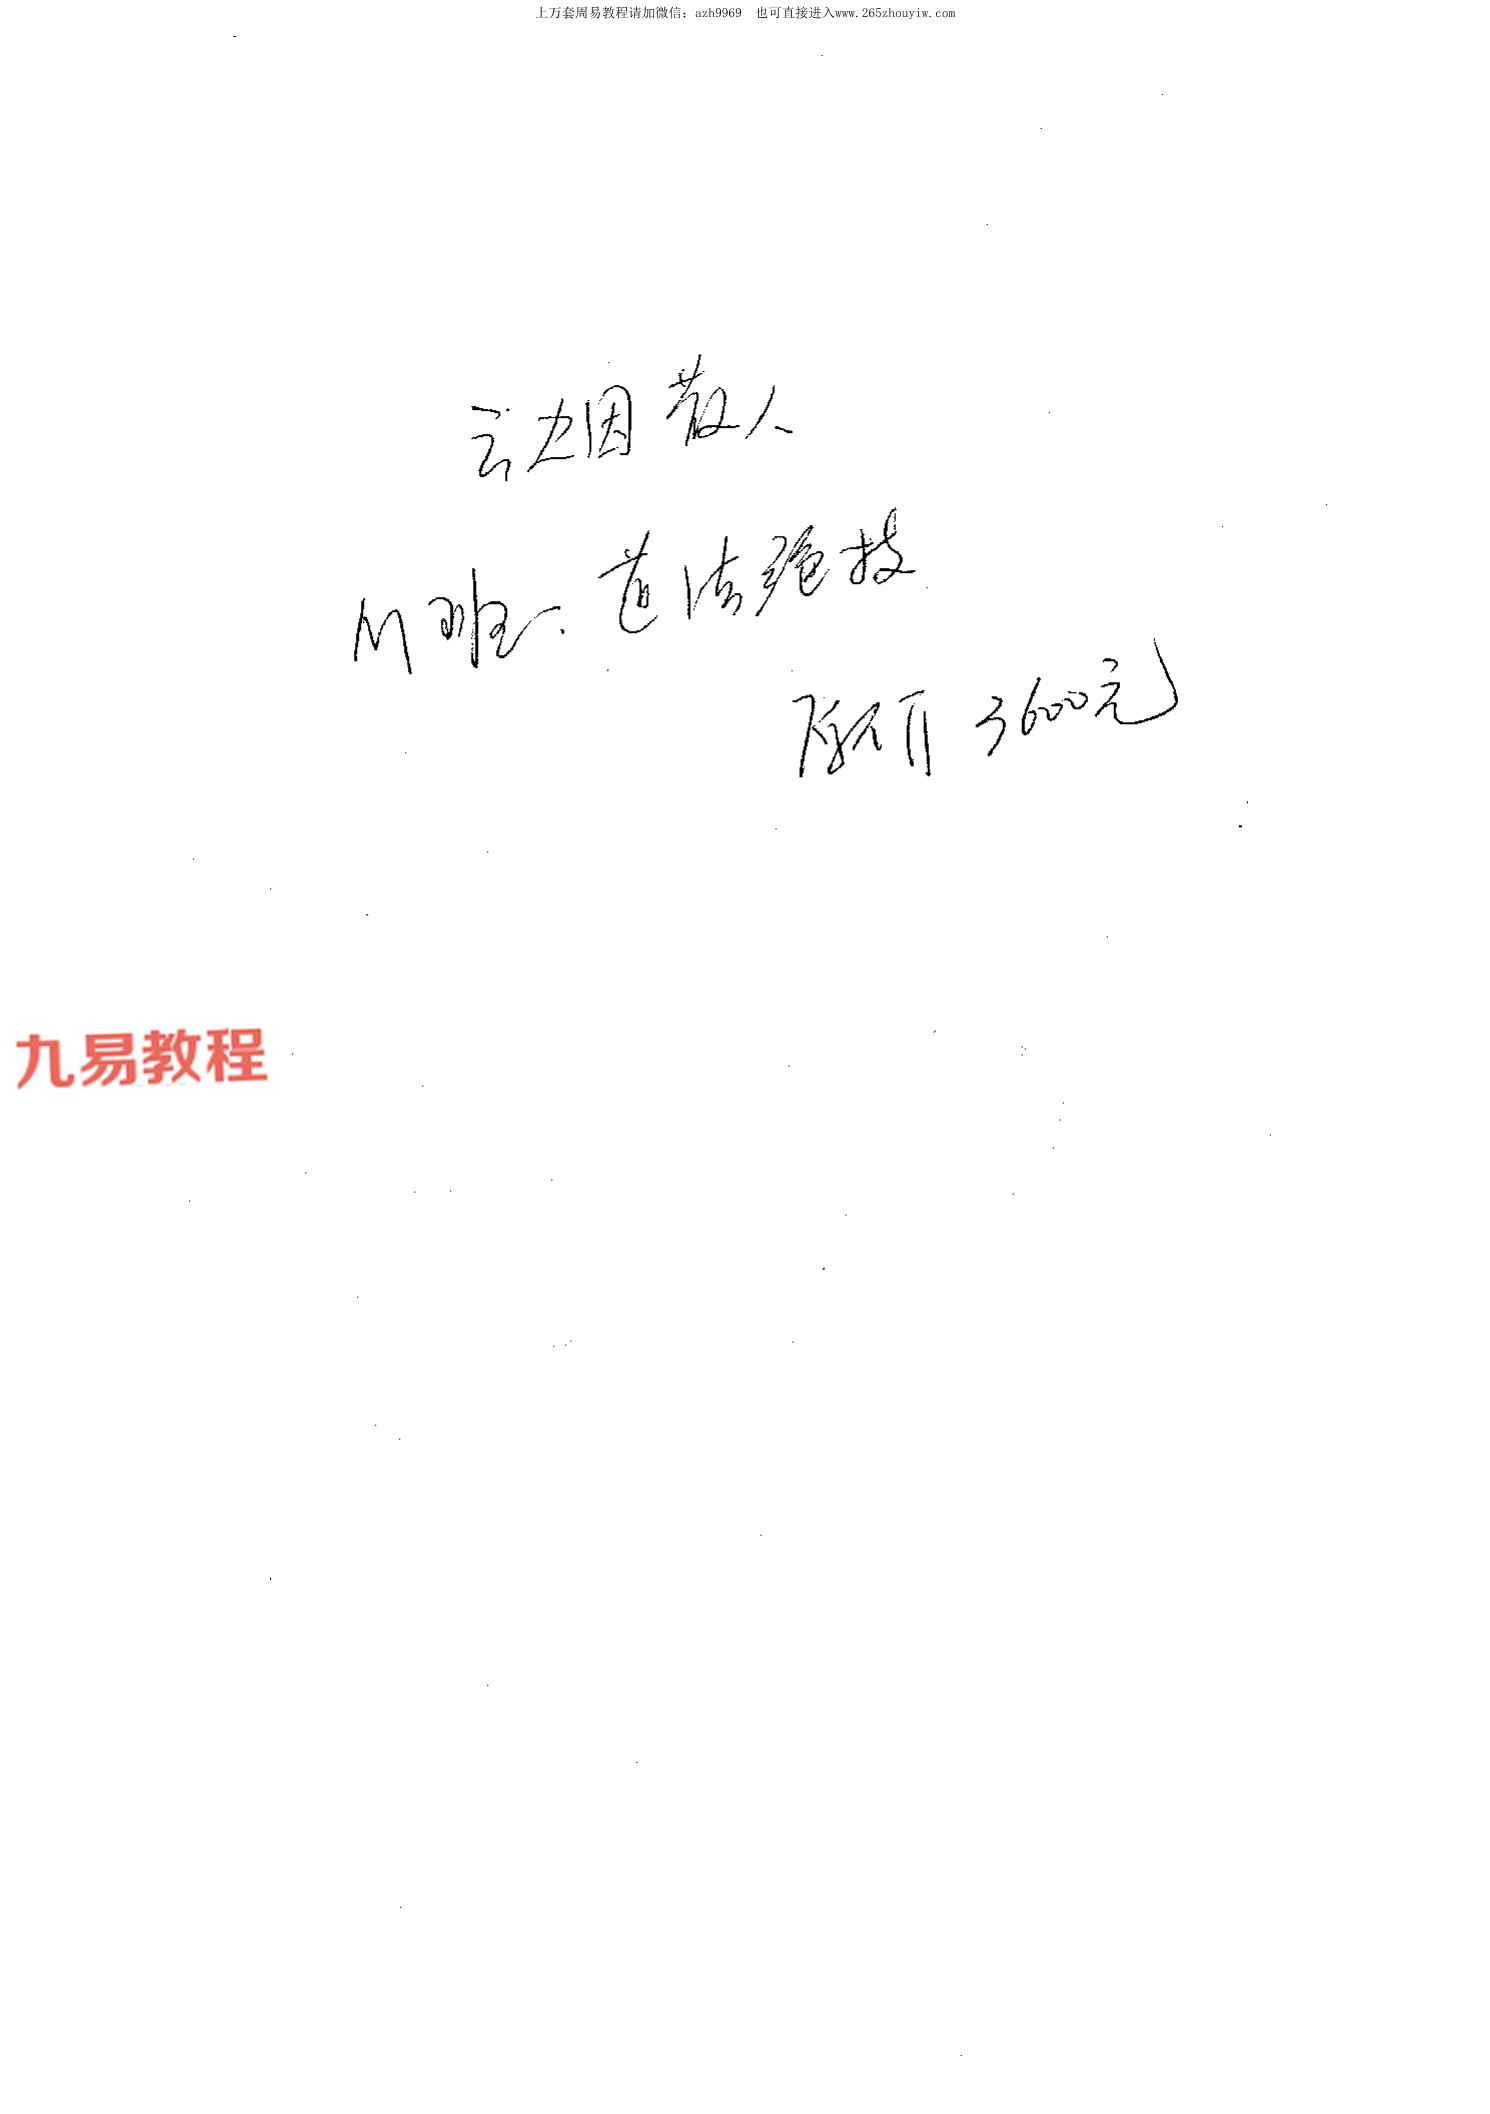 上万套周易教程请加微信：azh9969 也可直接进入www.265zhouyiw.com
云烟散人
道法绝技
3600元
九易教程